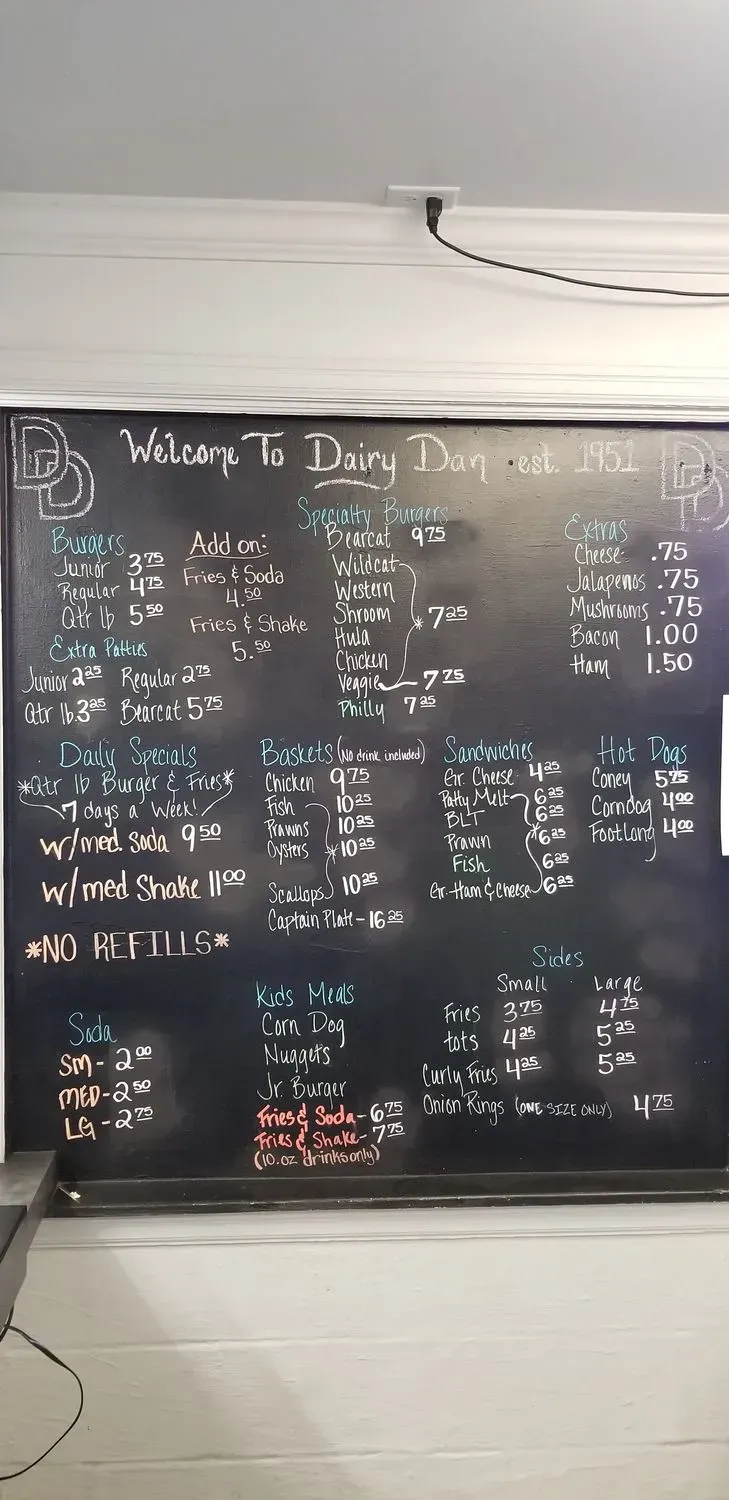 DD
Welcome To Dairy Dan • est. 1951
DD
Burgers
Junior 3.75
Regular 4.75
Qtr lb 5.50
Extra Patties
Junior 2.25 Regular 2.75
Qtr lb. 3.25 Bearcat 5.75
Add on:
Fries & Soda
4.50
Fries & Shake
5.50
Specialty Burgers
Bearcat 9.75
Wildcat
Western
Shroom * 7.25
Hula
Chicken
Veggie 7.75
Philly 7.25
Extras
Cheese .75
Jalapenos .75
Mushrooms .75
Bacon 1.00
Ham 1.50
Daily Specials
*Qtr lb Burger & Fries*
7 days a Week!
w/med. Soda 9.50
w/med Shake 11.00
*NO REFILLS*
Baskets (No drink included)
Chicken 9.75
Fish 10.25
Prawns 10.25
Oysters * 10.25
Scallops 10.25
Captain Plate - 16.25
Sandwiches
Gr. Cheese 4.25
Patty Melt 6.25
BLT 6.25
Prawn * 6.25
Fish 6.25
Gr. Ham & Cheese 6.25
Hot Dogs
Coney 5.75
Corndog 4.00
Footlong 4.00
Soda
SM - 2.00
MED - 2.50
LG - 2.75
Kids Meals
Corn Dog
Nuggets
Jr. Burger
Fries & Soda - 6.75
Fries & Shake - 7.75
(10.oz drinks only)
Sides
Small Large
Fries 3.75 4.75
tots 4.25 5.25
Curly Fries 4.25 5.25
Onion Rings (ONE SIZE ONLY) 4.75